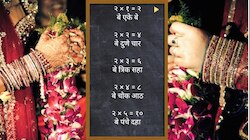 २×१=२
बे एके बे
२×२=४
बे दुणे चार
२×३=६
बे त्रिक सहा
२×४=८
बे चोक आठ
२×५=१०
बे पंचे दहा